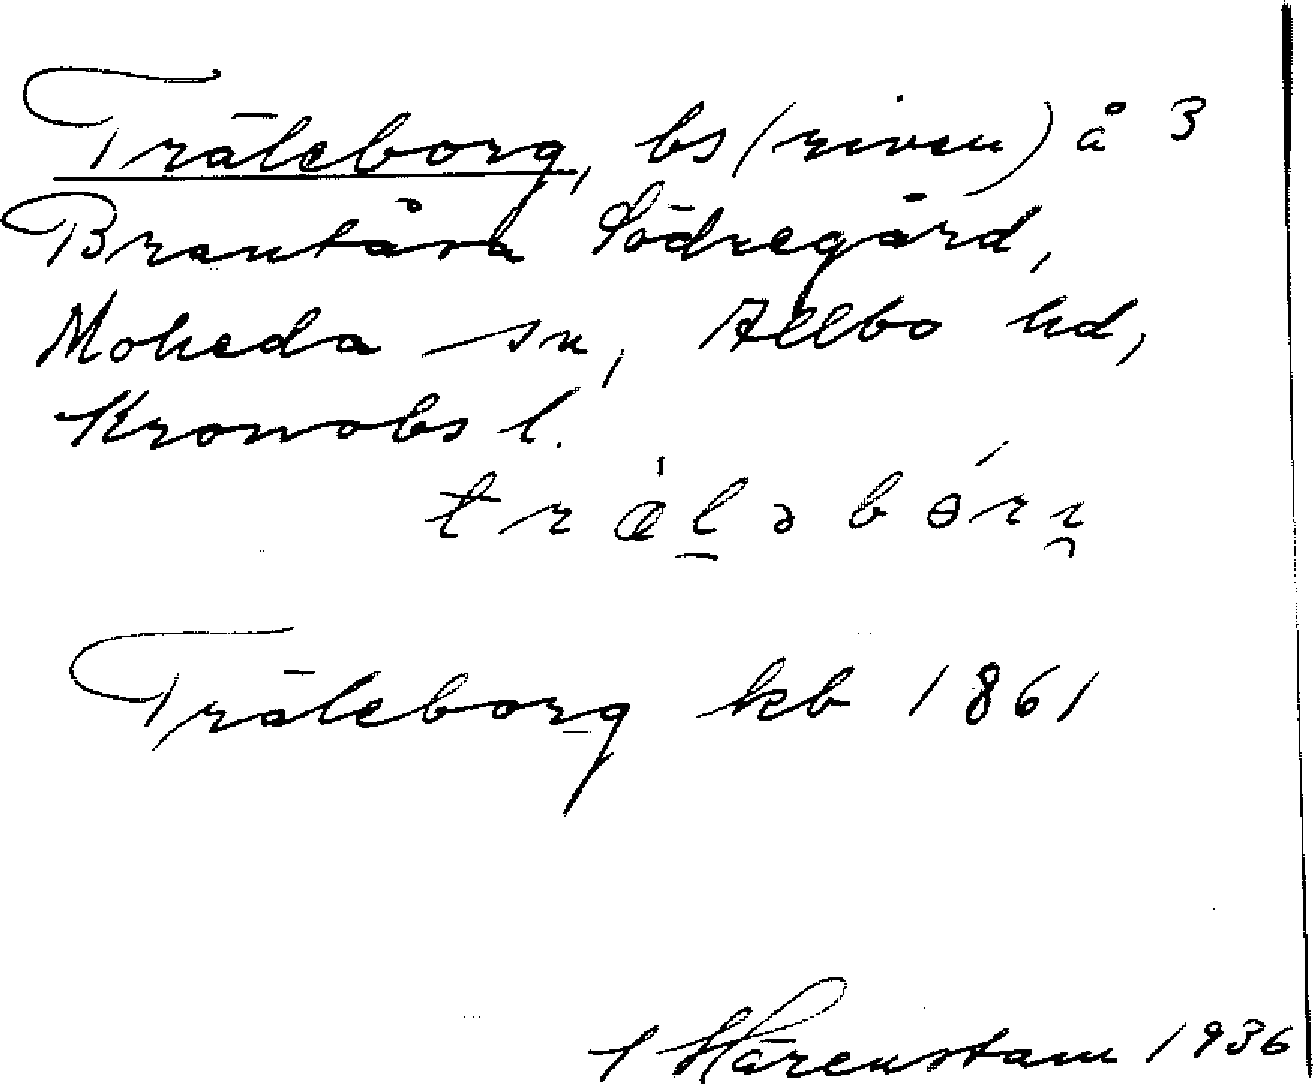 Träleborg, bs (riven) å 3
Brantåsa Södregård,
Moheda sn, Allbo hd,
Kronobs l.
Träleborg kb 1861
Härenstam 1936